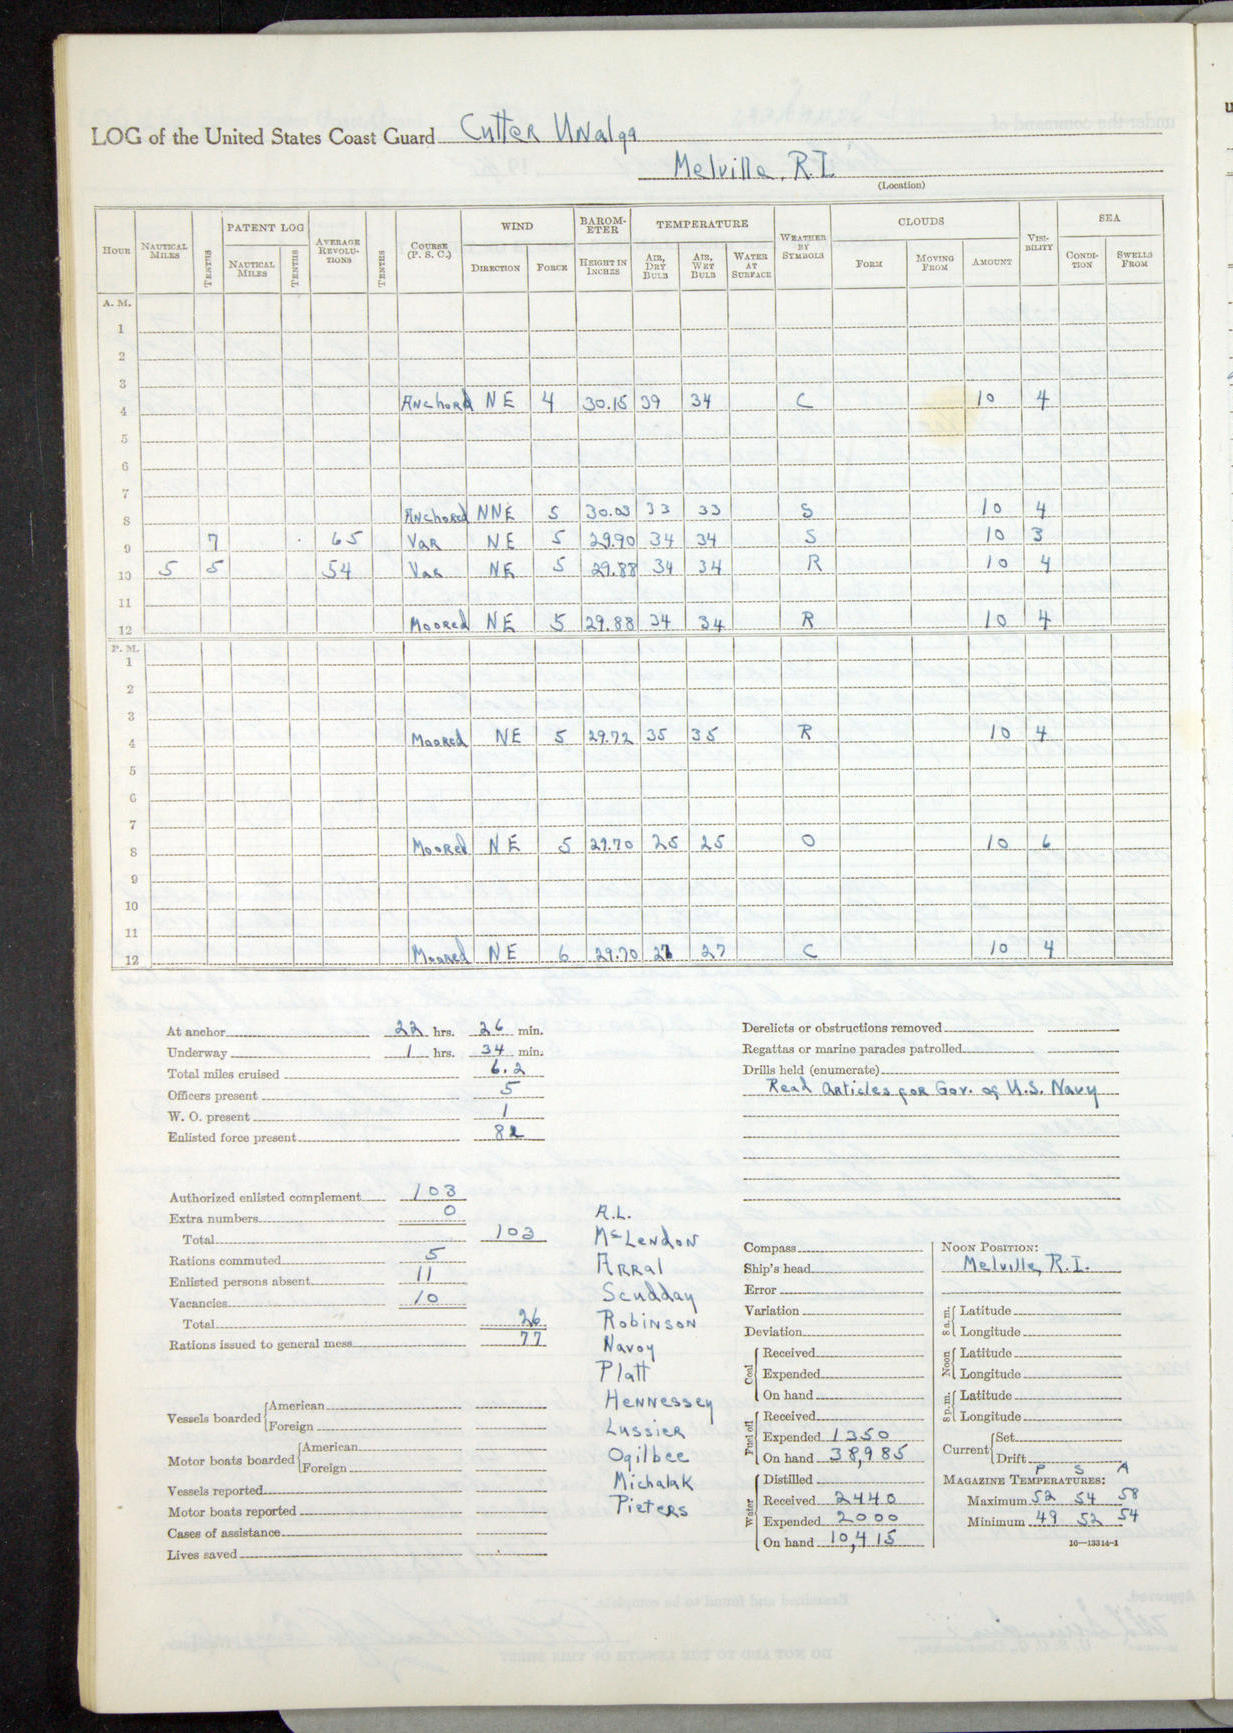 LOG of the United States Coast Guard Cutter Unalga
Melville, R.I.
(Location)
HOUR NAUTICAL MILES TENTHS PATENT LOG NAUTICAL MILES TENTHS AVERAGE REVOLUTIONS TENTHS COURSE (P. S. C.) WIND DIRECTION FORCE BAROMETER HEIGHT IN INCHES TEMPERATURE AIR, DRY BULB AIR, WET BULB WATER AT SURFACE WEATHER BY SYMBOLS CLOUDS FORM MOVING FROM AMOUNT VISIBILITY SEA CONDITION SWELLS FROM
A. M.
1
2
3
4 Anchored NE 4 30.15 39 34 C 10 4
5
6
7
8 Anchored NNE 5 30.03 33 33 S 10 4
9 7 65 Var NE 5 29.90 34 34 S 10 3
10 5 5 54 Var NE 5 29.88 34 34 R 10 4
11
12 Moored NE 5 29.88 34 34 R 10 4
P. M.
1
2
3
4 Moored NE 5 29.72 35 35 R 10 4
5
6
7
8 Moored NE 5 29.70 25 25 O 10 6
9
10
11
12 Moored NE 6 29.70 27 27 C 10 4
At anchor 22 hrs. 26 min.
Underway 1 hrs. 34 min.
Total miles cruised 6.2
Officers present 5
W. O. present 1
Enlisted force present 82
Authorized enlisted complement 103
Extra numbers 0
Total 103
Rations commuted 5
Enlisted persons absent 11
Vacancies 10
Total 26
Rations issued to general mess 77
Vessels boarded American
Foreign
Motor boats boarded American
Foreign
Vessels reported
Motor boats reported
Cases of assistance
Lives saved
A.L.
McLendon
Arral
Scudday
Robinson
Navoy
Platt
Hennessey
Lussier
Ogilbee
Michalak
Pieters
Derelicts or obstructions removed
Regattas or marine parades patrolled
Drills held (enumerate)
Read Articles for Gov. of U.S. Navy
Compass
Ship's head
Error
Variation
Deviation
Coal Received
Expended
On hand
Fuel oil Received
Expended 1350
On hand 38,985
Water Distilled
Received 2440
Expended 2000
On hand 10,415
NOON POSITION:
Melville, R.I.
8 a.m. Latitude
Longitude
Noon Latitude
Longitude
8 p.m. Latitude
Longitude
Current Set
Drift
P S A
MAGAZINE TEMPERATURES:
Maximum 52 54 58
Minimum 49 52 54
16—13314-1